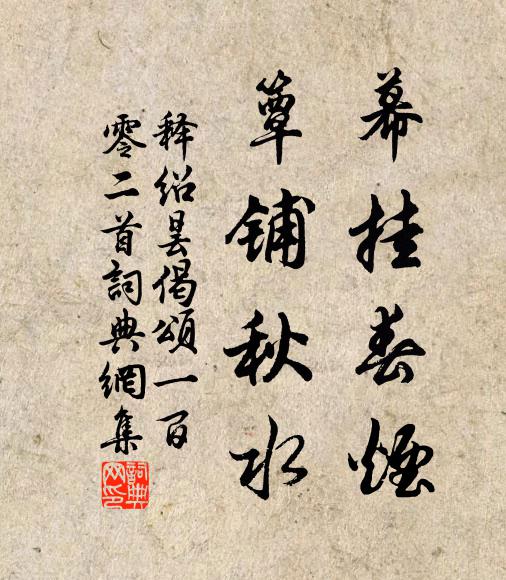 幕挂春煙
簟铺秋水
释绍昙偈頌一百
零二首詞典網集
詞典网印